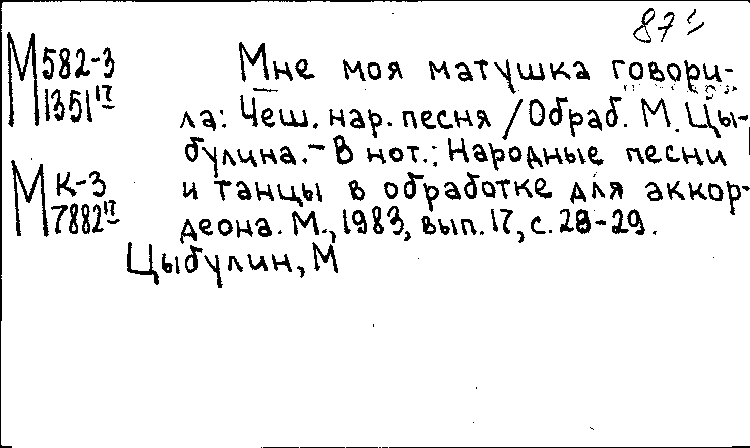 87
М 582-3
1351 17
М К-3
7882 17
Мне моя матушка говори-
ла: Чеш. нар. песня / Обраб. М. Цы-
булина. - В нот.: Народные песни
и танцы в обработке для аккор-
деона. М., 1983, вып. 17, с. 28-29.
Цыбулин, М